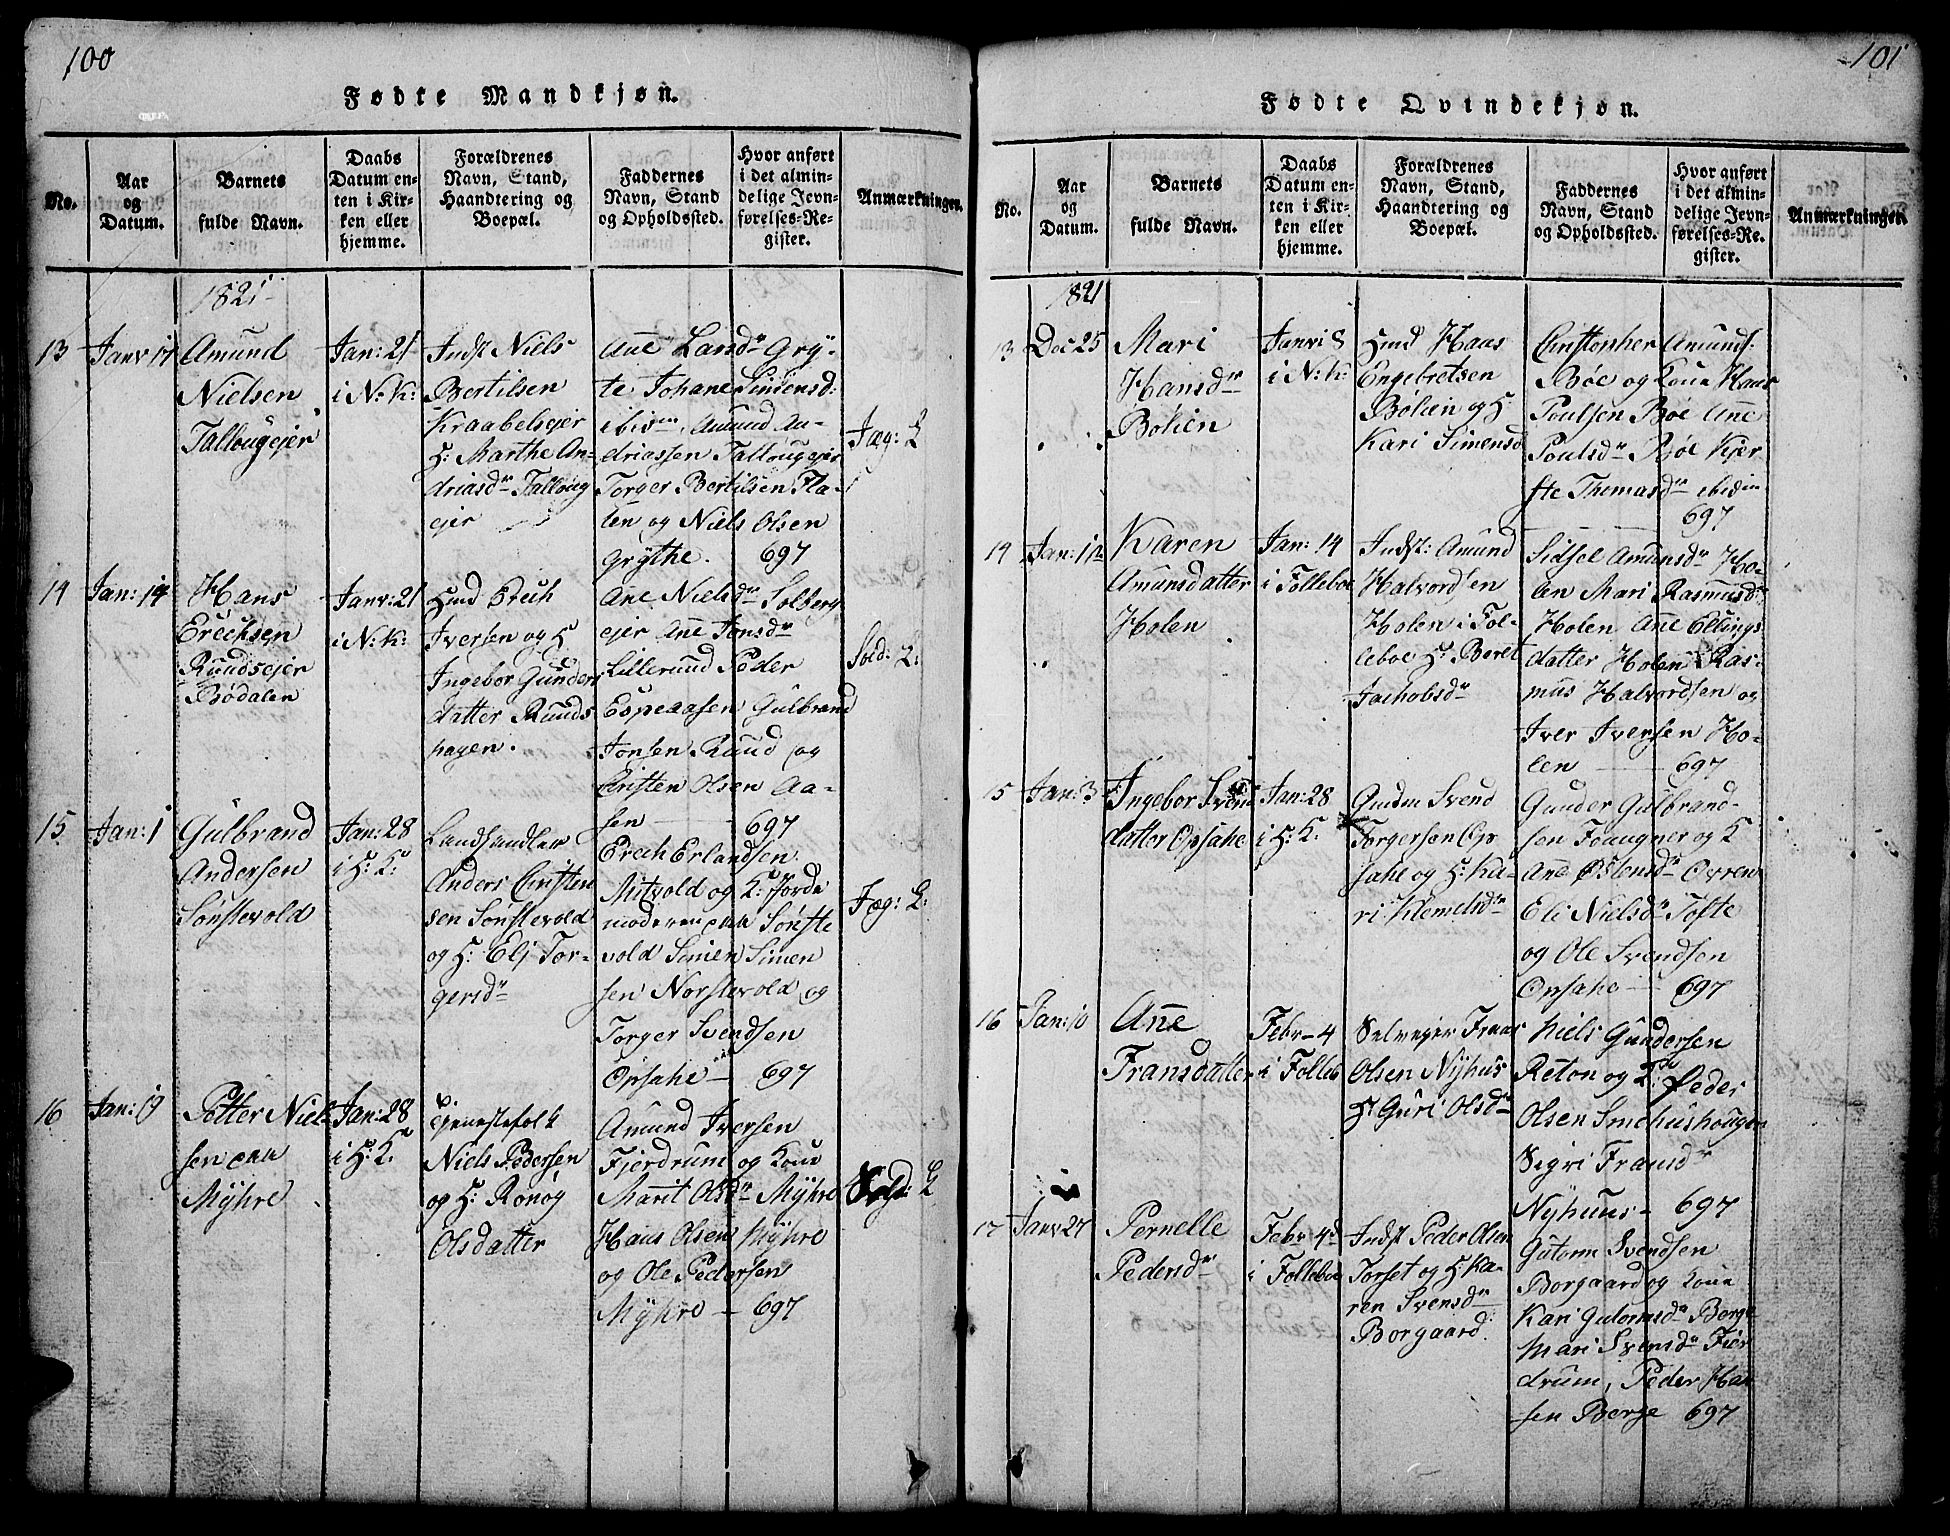 100
Fødte Mandkjøn.
No.
Aar
og
Datum.
Barnets
fulde Navn.
Daabs
Datum en-
ten i Kir-
ken eller
hjemme.
Forældrenes
Navn, Stand,
Haandtering og
Boepæl.
Faddernes
Navn, Stand
og Opholdssted.
Hvor anført
i det almin-
delige Jevn-
førelses-Re-
gister.
Anmærkninger.
1821
13
Janv 17
Amund
Nielsen
Tallougejer
Jan: 21
i N: K:
Indst Niels
Bertilsen
Kraabelsejer
H: Marthe An-
driasd.r Talloug
ejer
Ane Larsd.r Gry-
te Johane Simensd:
ibid.m, Amund An-
driassen Tallougejer
Torger Bertilsen Fla-
ten og Niels Olsen
Grythe. 697
Jæg: L
14
Jan: 14
Hans
Erechsen
Ruudsejer
Bødalen
Janv: 21
i N: K:
Huusmd Erech
Iversen og H
Ingebor Gunders
datter Ruuds
hagen.
Ane Nielsd.r Solberg
ejer Ane Jonsd.r
Lillerund Peder
Espenasen Gulbrand
Jonsen Ruud og
Cristen Olsen Aa-
sen — 697
Sold: L:
15
Jan: 1
Gulbrand
Andersen
Sønstevold
Jan: 28
i H: K:
Landhandler
Anders Cristen
sen Sønstevold
og H: Eli Tor-
gersd.r
Erech Erlandsen
Mitvold og K: Jorde
moderen paa Sønste
vold Simen Simen
sen Norstevold og
Torger Svendsen
Opsahe — 697
Jæg: L:
16
Jan: 19
Petter Niel-
sen paa
Myhre
Jan: 28
i H: K:
Tjenestefolk
Niels Pedersen
og H: Rønøg
Olsdatter
Amund Iversen
Fjerdrum og Kone
Marrit Olsd.r Myhre
Hans Olsen Myhre
og Ole Pedersen
Myhre — 697
Sold: L
101
Fødte Qvindekjøn.
No.
Aar
og
Datum.
Barnets
fulde Navn.
Daabs
Datum en-
ten i Kir-
ken eller
hjemme.
Forældrenes
Navn, Stand,
Haandtering og
Boepæl.
Faddernes
Navn, Stand
og Opholdssted.
Hvor anført
i det almin-
delige Jevn-
førelses-Re-
gister.
Anmærkninger
1821
13
Dec 25
Mari
Hansd.r
Bøhen
Janv: 8
i N: K:
Huusmd Hans
Engebretsen
Bøhen og H:
Kari Simensd
Christopher Amunds:
Bøe og Kone Hans
Poulsen Bøe Ane
Poulsd.r Bøe Kjer-
ste Thomasd.r ibidm
697
14
Jan: 12
Karen
Amunsdatter
Holen
Jan: 14
i Folleboe
Indst: Amund
Halvordsen
Holen i Fol-
leboe H: Beret
Jachobsd.r
Sidsel Amunsd.r Ho-
len Mari Rasmusd.r
Holen Ane Ellings
datter Holen Ras-
mus Halvordsen og
Iver Iversen Ho-
len — 697
15
Jan: 3
Ingebor Svens
datter Opsahe
Jan: 28
i H: K.
Gmdm Svend
Torgersen Op
sahe og H: Ka-
ri Klemetsd.r
Gunder Gulbrand-
sen Foaugner og K
Ane Østensd.r Ovren
Eli Nielsd.r Tofte
og Ole Svendsen
Opsahe — 697
16
Jan: 10
Ane
Fransdatter
Febr— 4
i Folleb
Selvejer Frans
Olsen Nyhus
H: Guri Olsd.r
Niels Gundersen
Reton og K: Peder
Olsen Smehushougen
Sigri Fransd.r
Nyhuus- 697
17
Janv 27
Pernelle
Pedersd.r
Febr 4d
i Folleboe
Indst Peder Olsen
Torset og H Ka-
ren Svensd.r
Borgaard.
Gutorm Svendsen
Borgaard og Kone
Kari Gutormsd.r Borge
Mari Svensd.r Fjer
drum, Peder Han
sen Berge 697